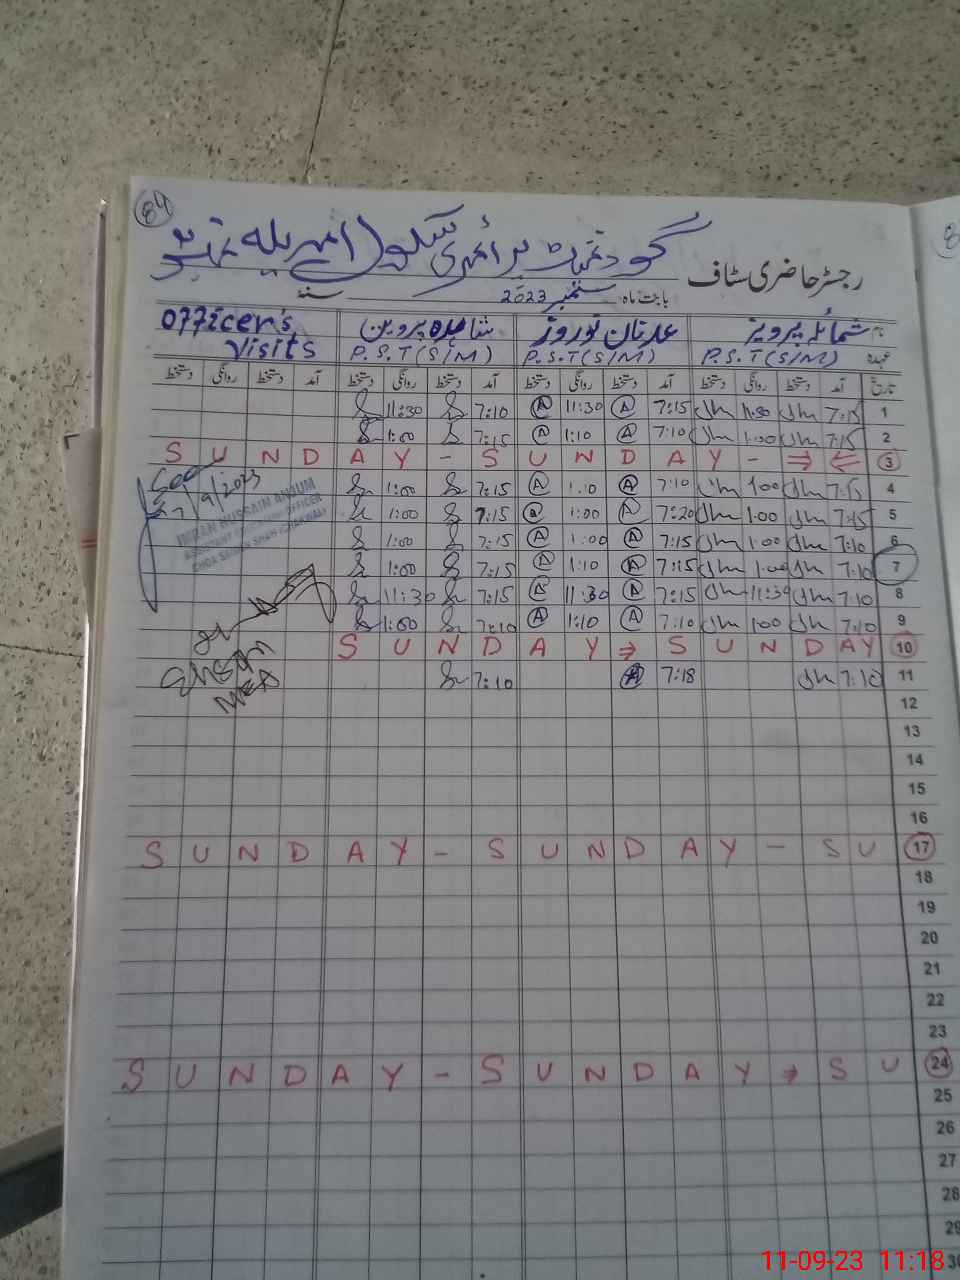 84
گورنمنٹ پرائمری سکول
رجسٹر حاضری سٹاف
بابت ماہ ستمبر 2023 سنہ
شمائلہ پرویز عدنان نوروز شاہدہ پروین Officer's Visits
عہدہ P.S.T (S/M) P.S.T (S/M) P.S.T (S/M)
تاریخ آمد دستخط روانگی دستخط آمد دستخط روانگی دستخط آمد دستخط روانگی دستخط آمد دستخط روانگی دستخط
1 7:15 11:30 7:15 A 11:30 A 7:10 11:30
2 7:15 1:00 7:10 A 1:10 A 7:15 1:00
SUNDAY - SUNDAY - ⇒ ⇐ 3
4 7:15 1:00 7:10 A 1:10 A 7:15 1:00
5 7:15 1:00 7:20 A 1:00 a 7:15 1:00
6 7:10 1:00 7:15 A 1:00 A 7:15 1:00
7 7:10 1:00 7:15 A 1:10 A 7:15 1:00
8 7:10 11:30 7:15 A 11:30 A 7:15 11:30
9 7:10 1:00 7:10 A 1:10 A 7:10 1:00
SUNDAY ⇒ SUNDAY 10
11 7:10 7:18 A 7:10
12
13
14
15
16
SUNDAY - SUNDAY - SU 17
18
19
20
21
22
23
SUNDAY - SUNDAY ⇒ SU 24
25
26
27
28
29
30
/9/2023
IMRAN HUSSAIN ANJUM
ASSISTANT EDUCATION OFFICER
CHOA SAIDAN SHAH (CHAKWAL)
MEA
11-09-23 11:18